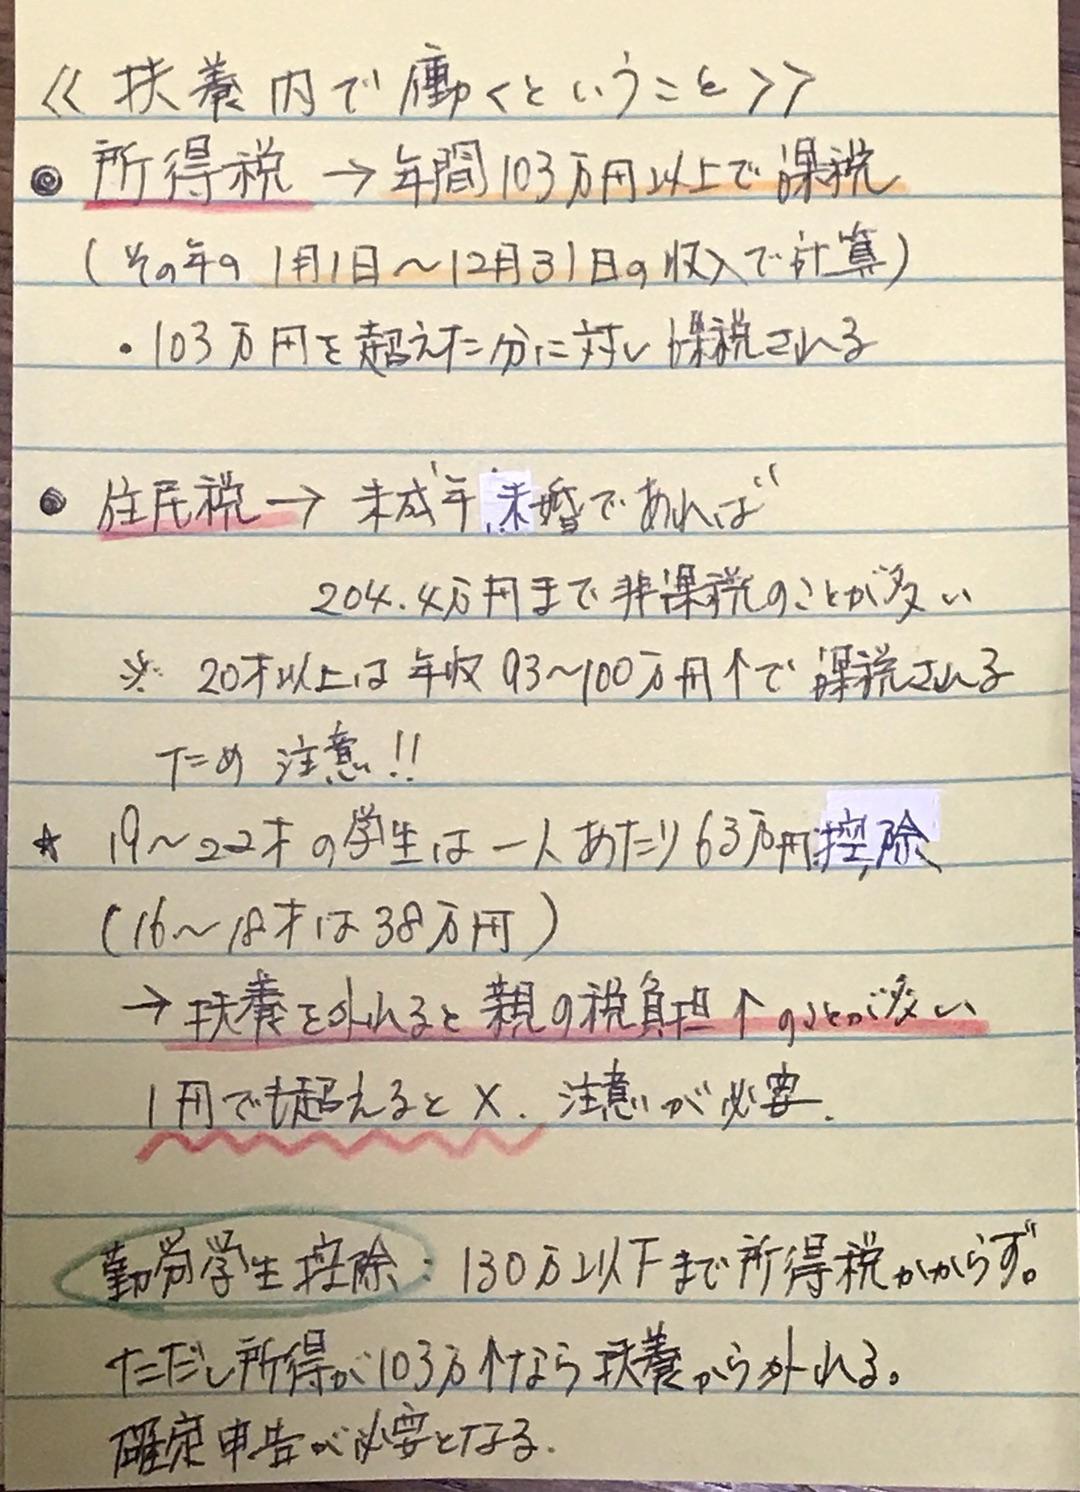 ≪扶養内で働くということ≫
◉ 所得税 → 年間103万円以上で課税
(その年の1月1日〜12月31日の収入で計算)
・103万円を超えた分に対し課税される
● 住民税 → 未成年,未婚であれば
204.4万円まで非課税のことが多い
※ 20才以上は年収93〜100万円↑で課税される
ため注意!!
★ 19〜22才の学生は一人あたり63万円控除
(16〜18才は38万円)
→扶養を外れると親の税負担↑のことが多い
1円でも超えると×. 注意が必要.
勤労学生控除:130万以下まで所得税かからず。
ただし所得が103万↑なら扶養から外れる。
確定申告が必要となる.